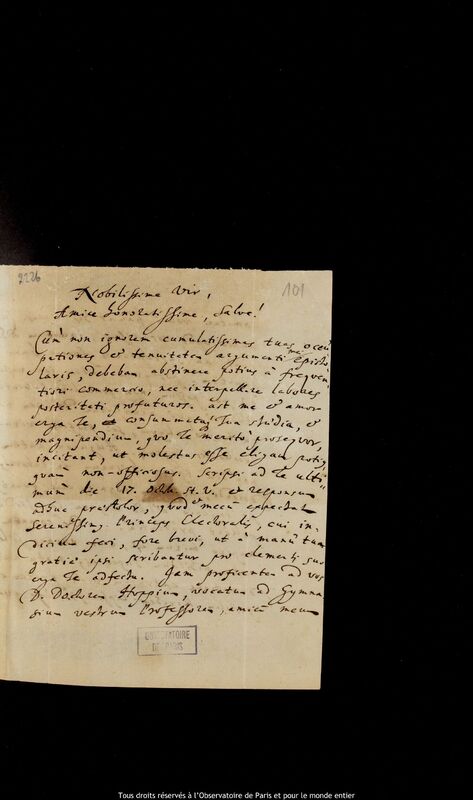 2226
101
Nobilissime Vir,
Amice honoratissime, Salve!
Cùm non ignorem cumulatissimas tuas occu
pationes et tenuitatem argumenti mei episto
laris, debebam abstinere potius à frequen
tiori commercio, nec interpellare labores
posteritati profuturos. ast me et amor
erga Te, et Tua studia, et
magnipendium, quo Te meritò prosequor,
incitant, ut molestus esse eligam potiq
quàm non-officiosus. Scripsi ad Te ulti
mùm die 17. Octob. st. v. et responsum
adhuc praestolor, quod mecum expectat
Serenissimq Princeps Electoralis, cui in-
dicium feci, fore brevi, ut à manu tua
gratiae ipsi scribantur pro clementi suo
erga Te adfectu. Jam proficentem ad vos
D. Doctorem Hoppium, vocatum ad Gymna
sium vestrum Professorem, amicum meum
OBSERVATOIRE
DE PARIS
Tous droits réservés à l'Observatoire de Paris et pour le monde entier